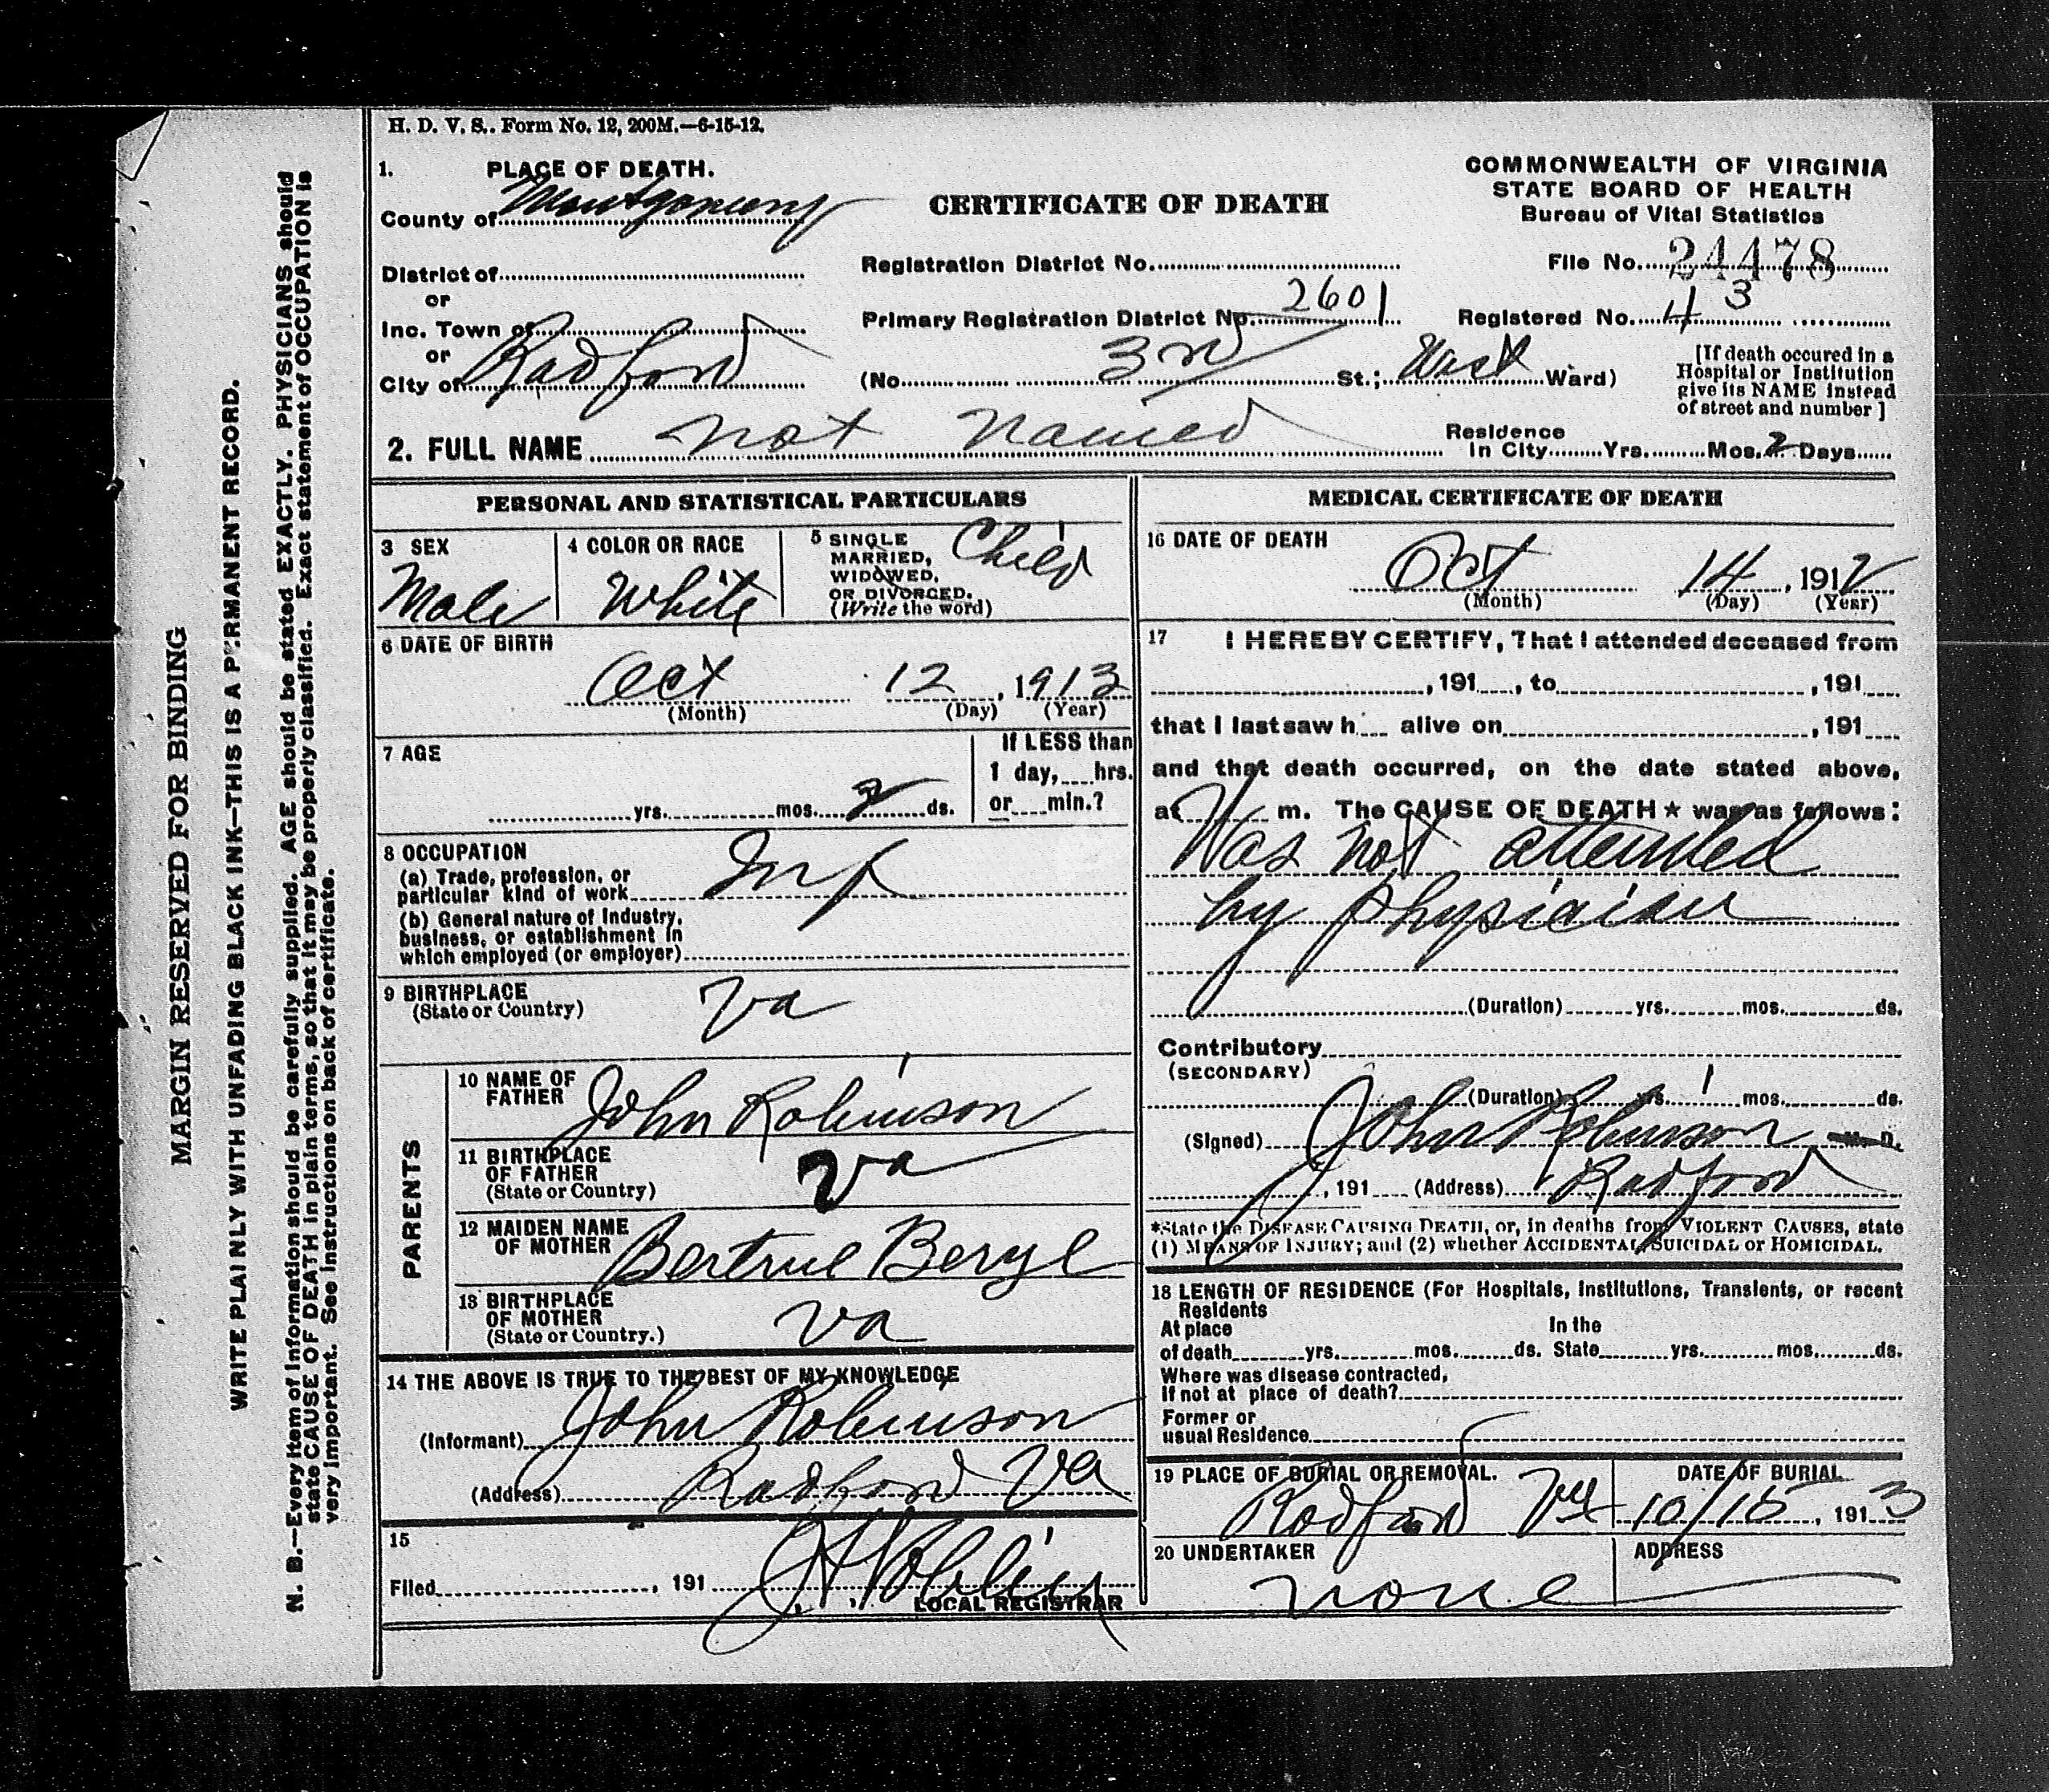 H. D. V. S.. Form No. 12, 200M.—6-15-12.
1. PLACE OF DEATH.
County of Montgomery
District of
or
Inc. Town of
or
City of Radford
CERTIFICATE OF DEATH
Registration District No.
Primary Registration District No. 2601
(No. 3rd St.; West Ward)
COMMONWEALTH OF VIRGINIA
STATE BOARD OF HEALTH
Bureau of Vital Statistics
File No. 24478
Registered No. 43
[If death occured in a
Hospital or Institution
give its NAME instead
of street and number ]
2. FULL NAME not named
Residence
in City Yrs. Mos. 2 Days
PERSONAL AND STATISTICAL PARTICULARS
3 SEX
Male
4 COLOR OR RACE
White
5 SINGLE
MARRIED,
WIDOWED,
OR DIVORCED.
(Write the word)
Child
6 DATE OF BIRTH
Oct 12, 1913
(Month) (Day) (Year)
7 AGE
yrs. mos. 2 ds.
If LESS than
1 day, hrs.
or min.?
8 OCCUPATION
(a) Trade, profession, or
particular kind of work Inf
(b) General nature of Industry,
business, or establishment in
which employed (or employer)
9 BIRTHPLACE
(State or Country) Va
PARENTS
10 NAME OF
FATHER John Robinson
11 BIRTHPLACE
OF FATHER
(State or Country) Va
12 MAIDEN NAME
OF MOTHER Bertrue Beryl
13 BIRTHPLACE
OF MOTHER
(State or Country.) Va
14 THE ABOVE IS TRUE TO THE BEST OF MY KNOWLEDGE
(Informant) John Robinson
(Address) Radford Va
15
Filed , 191
LOCAL REGISTRAR
MEDICAL CERTIFICATE OF DEATH
16 DATE OF DEATH
Oct 14, 1912
(Month) (Day) (Year)
17 I HEREBY CERTIFY, That I attended deceased from
, 191 , to , 191
that I last saw h alive on , 191
and that death occurred, on the date stated above,
at m. The CAUSE OF DEATH ★ was as follows:
Was not attended
by physician
(Duration) yrs. mos. ds.
Contributory
(SECONDARY)
(Duration) yrs. mos. ds.
(Signed) John Robinson M. D.
, 191 (Address) Radford
*State the DISEASE CAUSING DEATH, or, in deaths from VIOLENT CAUSES, state
(1) MEANS OF INJURY; and (2) whether ACCIDENTAL, SUICIDAL or HOMICIDAL.
18 LENGTH OF RESIDENCE (For Hospitals, Institutions, Transients, or recent
Residents
At place In the
of death yrs. mos. ds. State yrs. mos. ds.
Where was disease contracted,
If not at place of death?
Former or
usual Residence
19 PLACE OF BURIAL OR REMOVAL.
Radford Va
DATE OF BURIAL
10/15, 1913
20 UNDERTAKER
none
ADDRESS
MARGIN RESERVED FOR BINDING
WRITE PLAINLY WITH UNFADING BLACK INK—THIS IS A PERMANENT RECORD.
N. B.—Every item of information should be carefully supplied. AGE should be stated EXACTLY. PHYSICIANS should
state CAUSE OF DEATH in plain terms, so that it may be properly classified. Exact statement of OCCUPATION is
very important. See instructions on back of certificate.